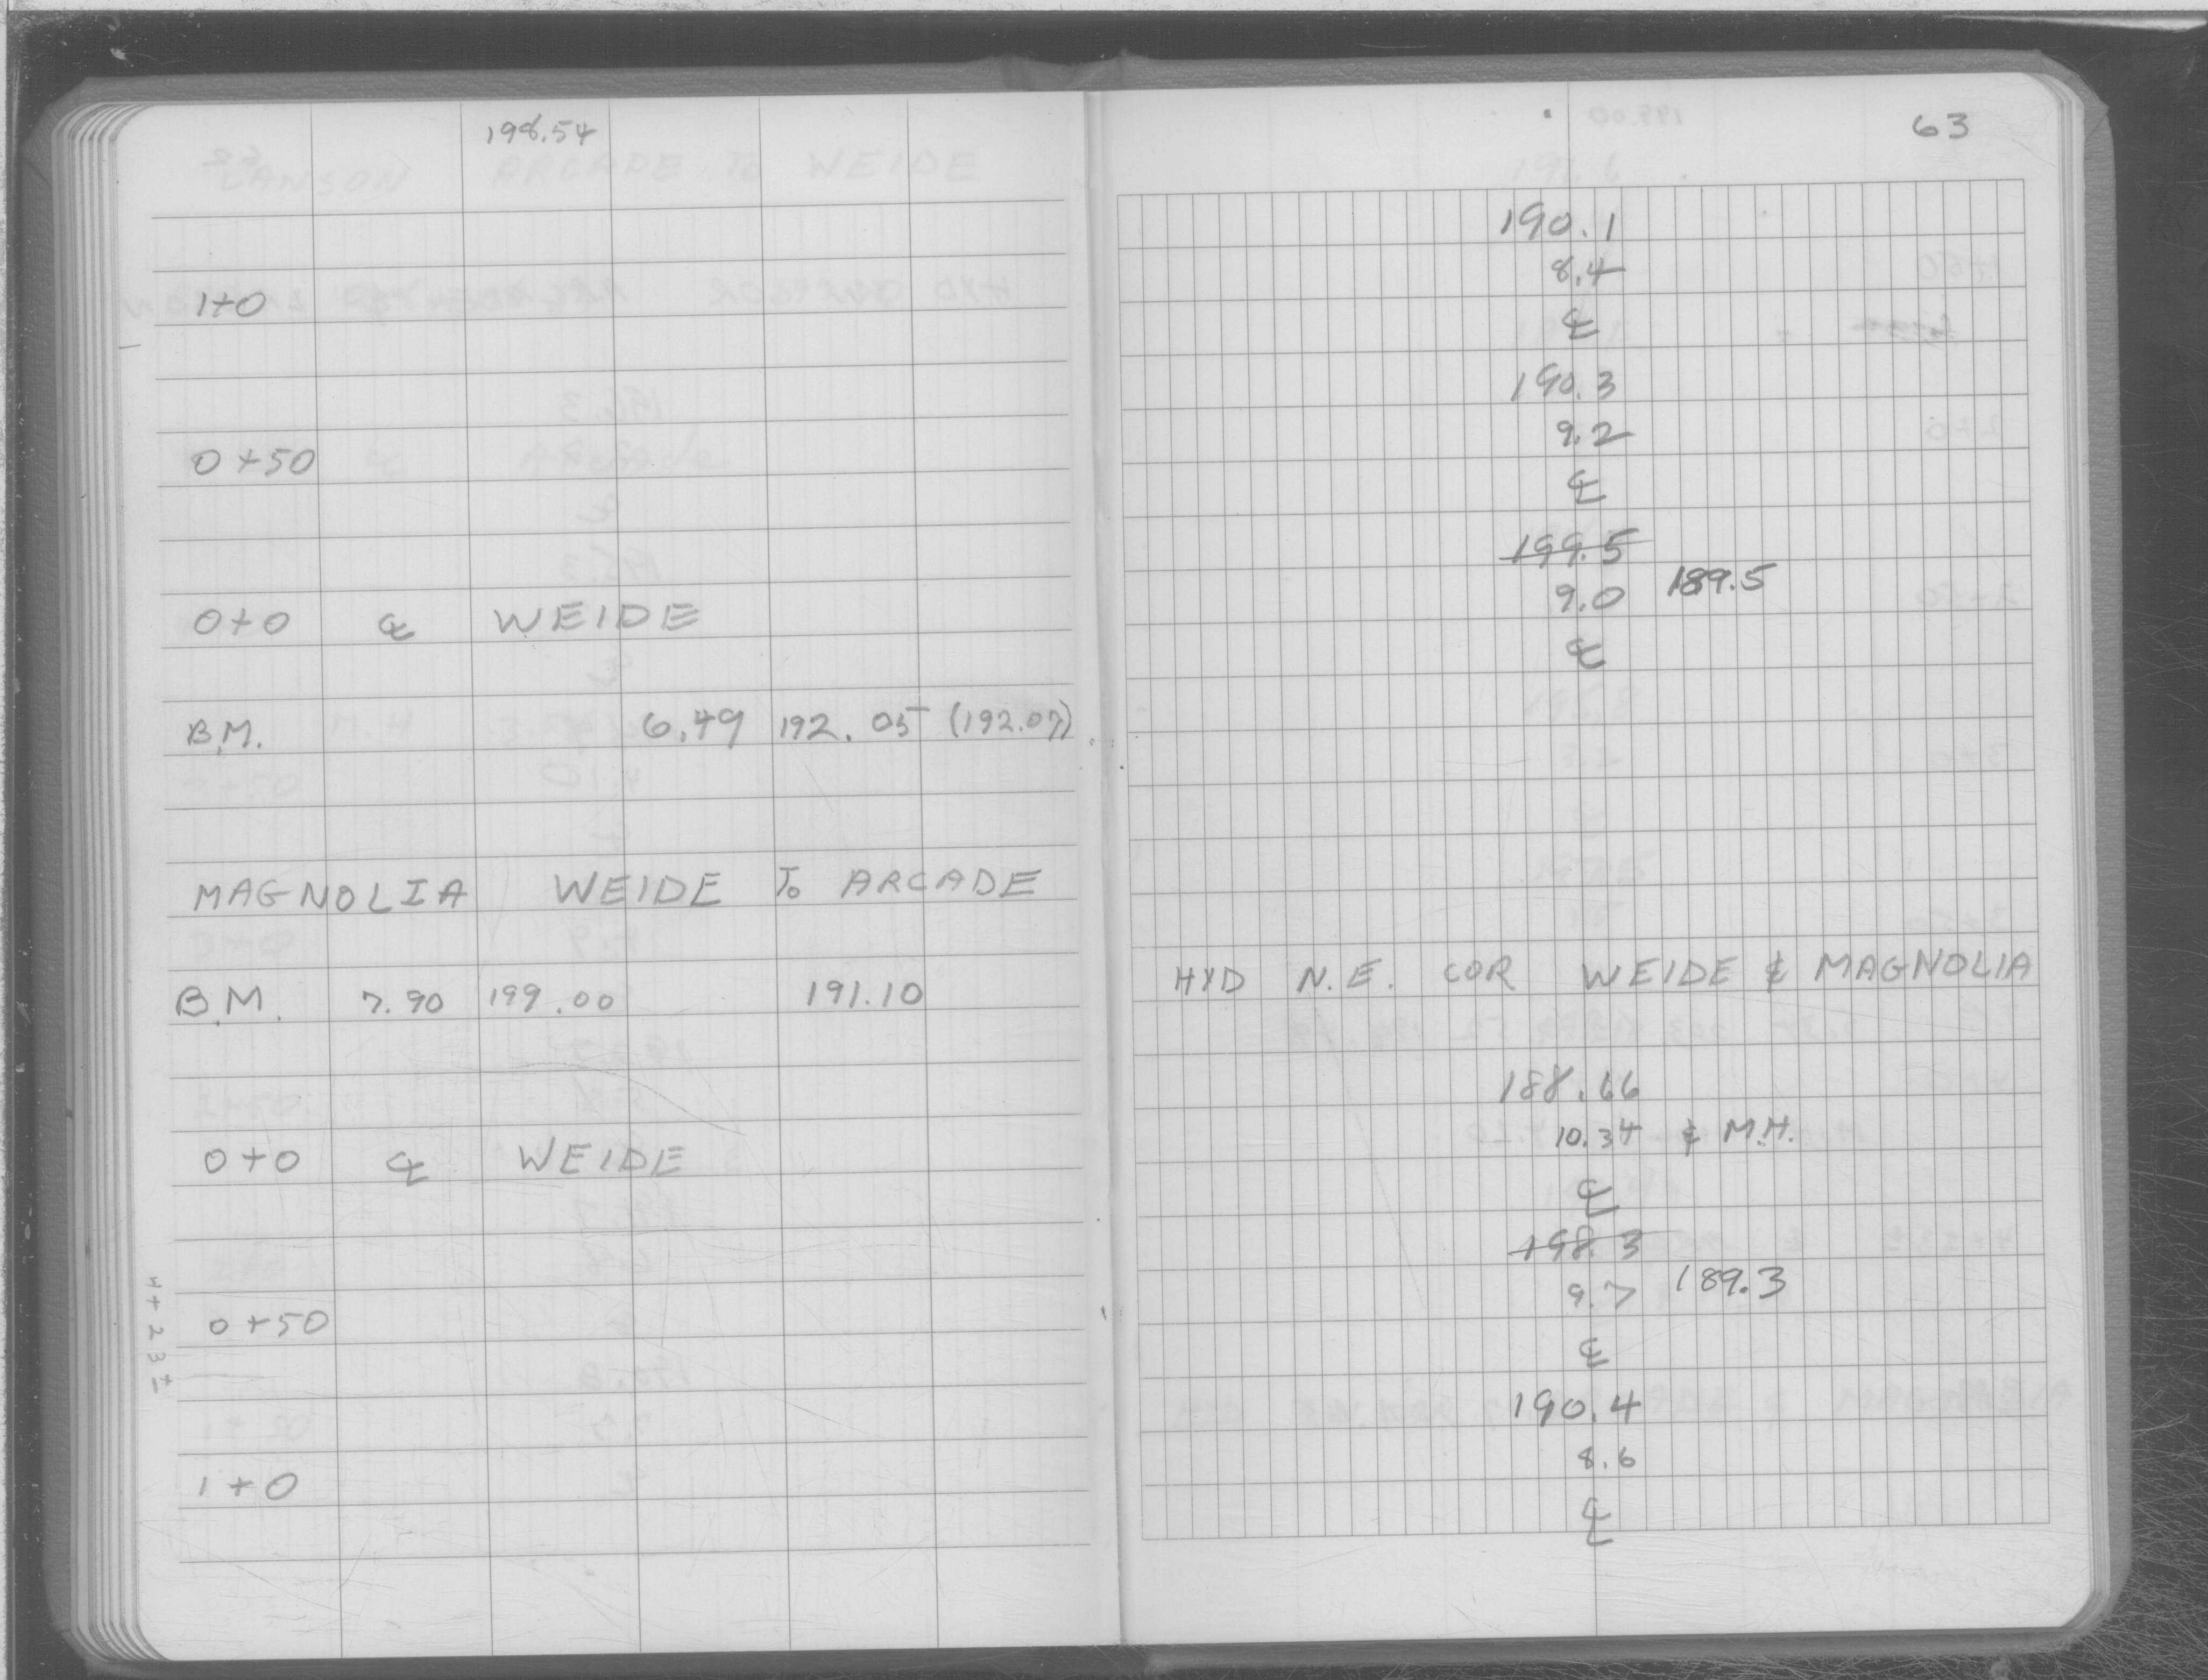 198.54
1+0
0+50
0+0 ℄ WEIDE
B.M. 6.49 192.05 (192.07)
MAGNOLIA WEIDE To ARCADE
B.M. 7.90 199.00 191.10
0+0 ℄ WEIDE
0+50
1+0
4+23±
63
190.1
8.4
℄
190.3
9.2
℄
199.5
9.0 189.5
℄
HYD N.E. COR WEIDE & MAGNOLIA
188.66
10.34 & M.H.
℄
198.3
9.7 189.3
℄
190.4
8.6
℄